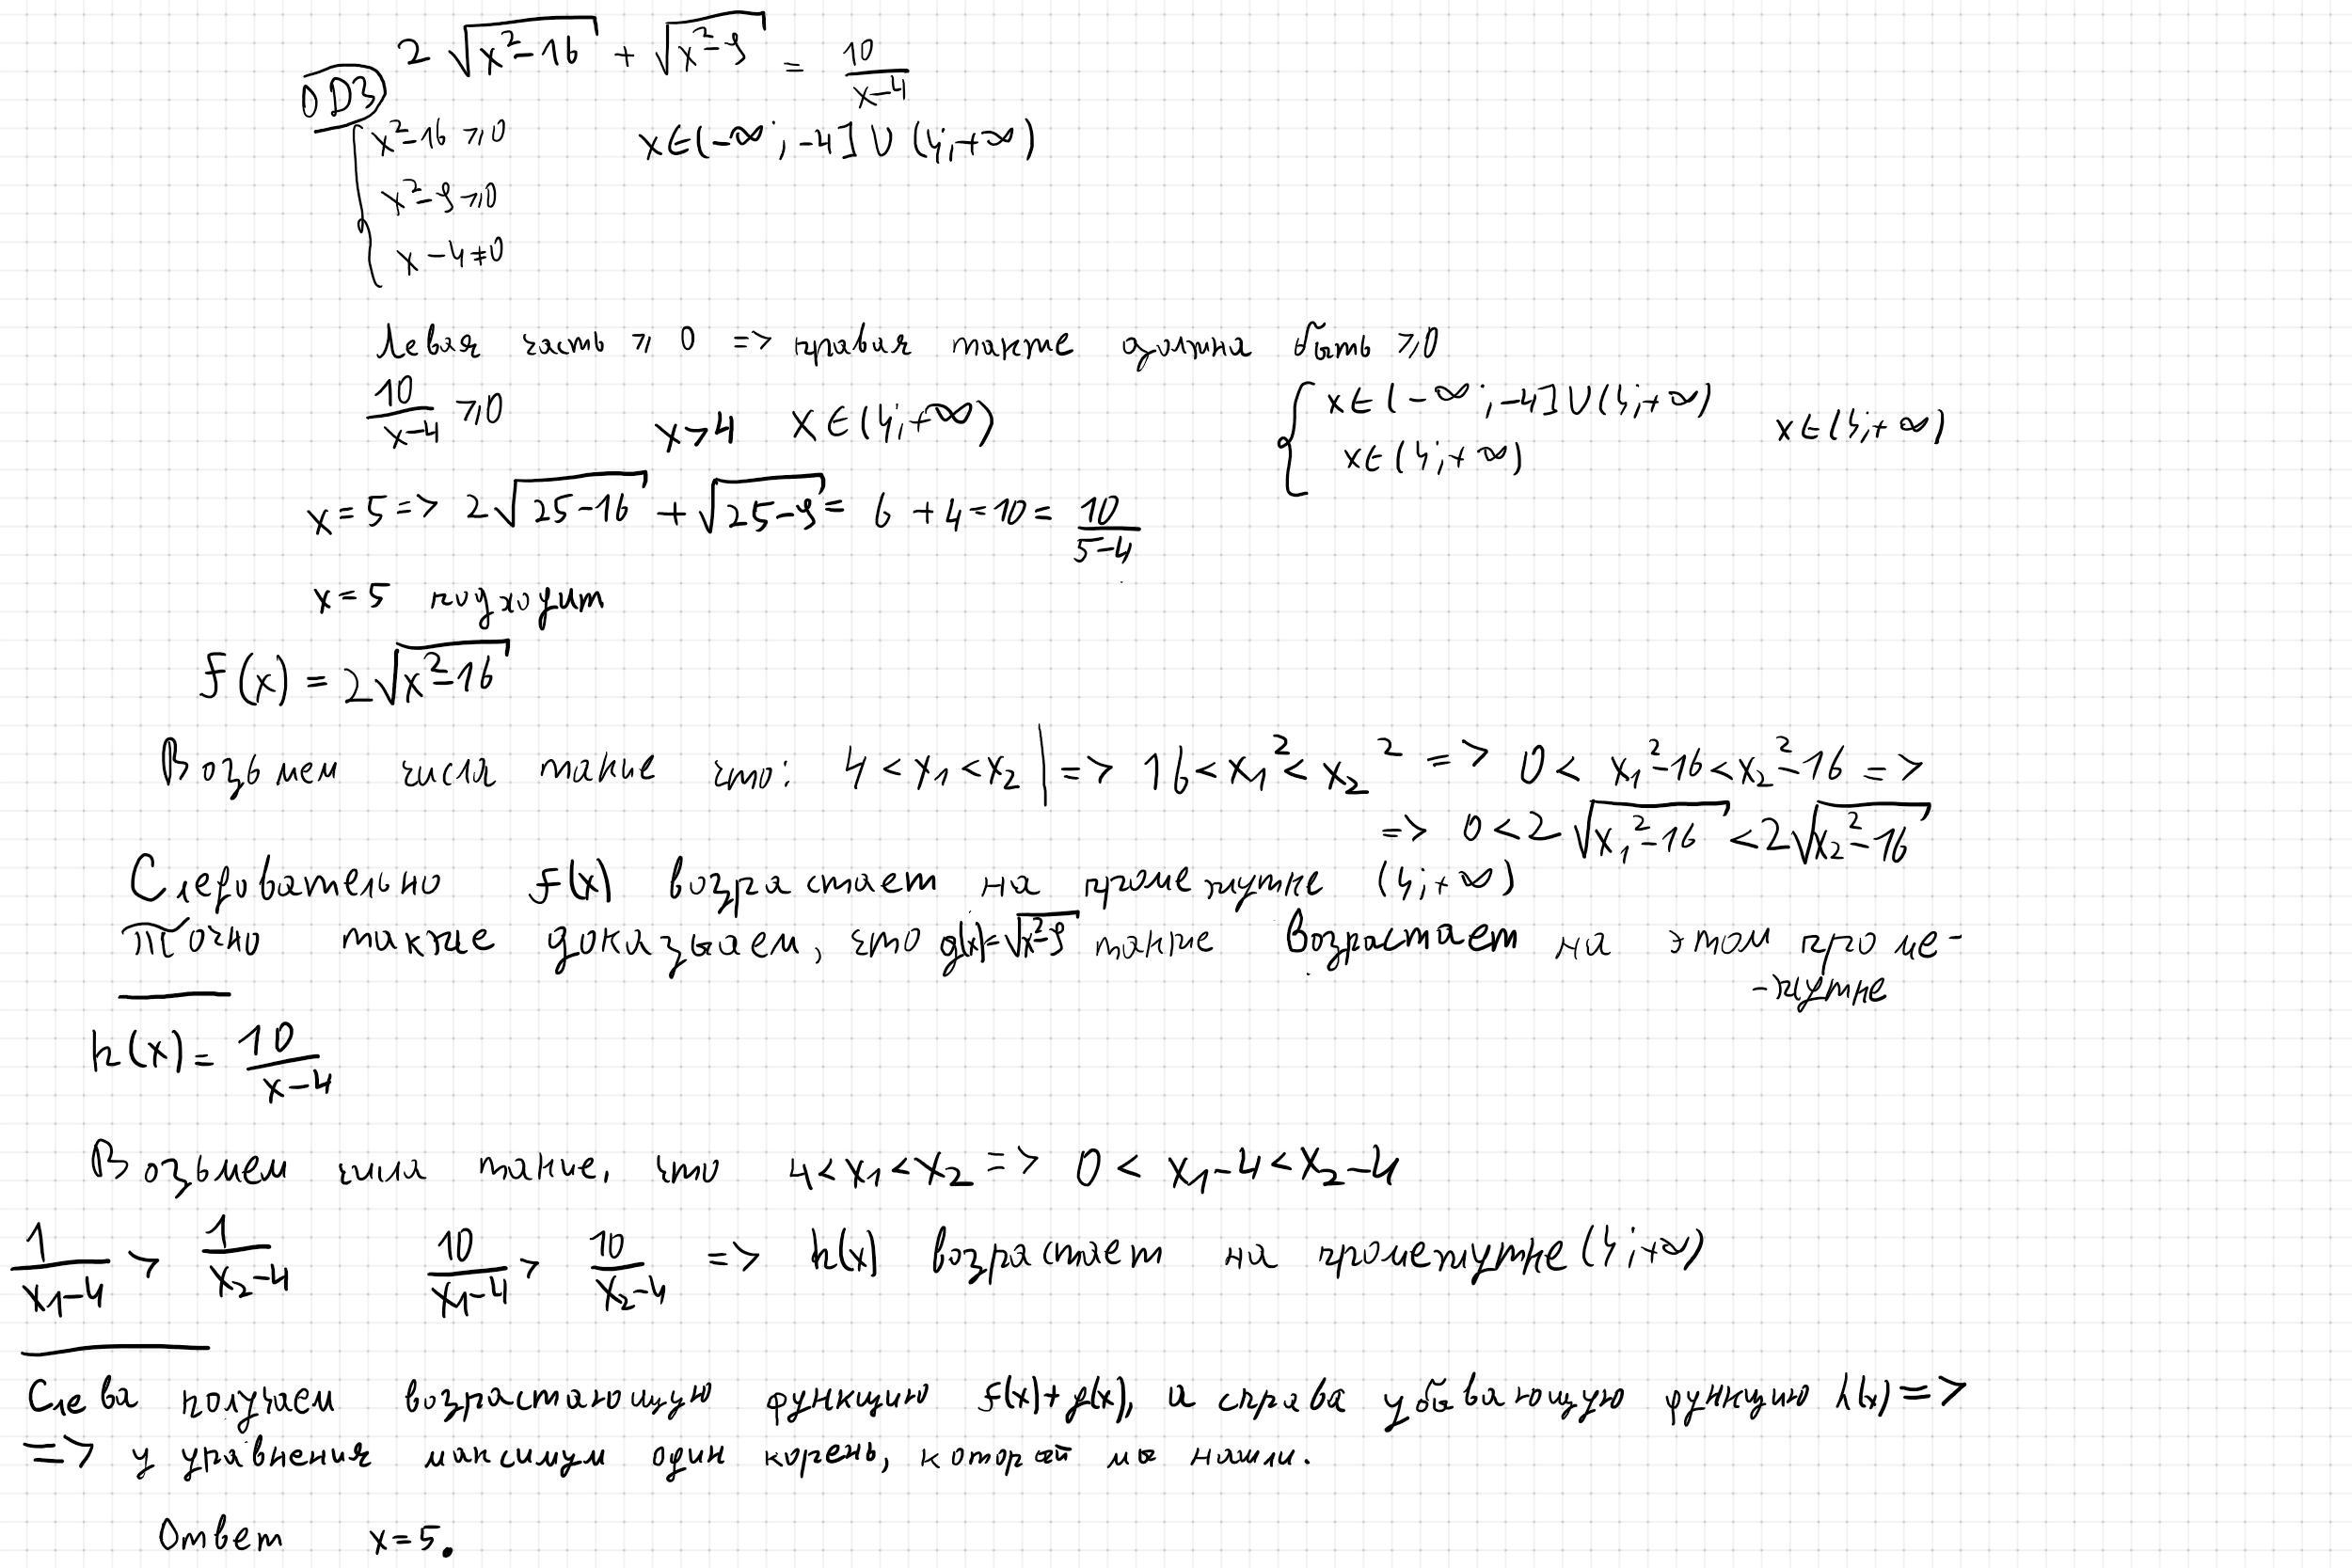 2√(x²-16) + √(x²-9) = 10/(x-4)
ОДЗ
x²-16 ⩾ 0     x∈(-∞; -4]∪(4;+∞)
x²-9 ⩾ 0
x-4≠0
Левая часть ⩾ 0 => правая также должна быть ⩾0
10/(x-4) ⩾ 0     x>4   x∈(4;+∞)     { x∈(-∞;-4]∪(4;+∞)   x∈(4;+∞)   x∈(4;+∞)
x=5 => 2√(25-16) + √(25-9) = 6 + 4 = 10 = 10/(5-4)
x=5 подходит
f(x) = 2√(x²-16)
Возьмем числа такие что: 4<x₁<x₂ | => 16<x₁²<x₂² => 0<x₁²-16<x₂²-16 =>
=> 0<2√(x₁²-16)<2√(x₂²-16)
Следовательно f(x) возрастает на промежутке (4;+∞)
Точно также доказываем, что g(x)=√(x²-9) также возрастает на этом проме-
-жутке
h(x) = 10/(x-4)
Возьмем числа такие, что 4<x₁<x₂ => 0 < x₁-4<x₂-4
1/(x₁-4) > 1/(x₂-4)     10/(x₁-4) > 10/(x₂-4) => h(x) возрастает на промежутке (4;+∞)
Слева получаем возрастающую функцию f(x)+g(x), а справа убывающую функцию h(x) =>
=> у уравнения максимум один корень, который мы нашли.
Ответ x=5.